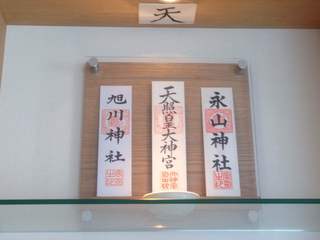 天
旭川神社
天照皇大神宮
永山神社